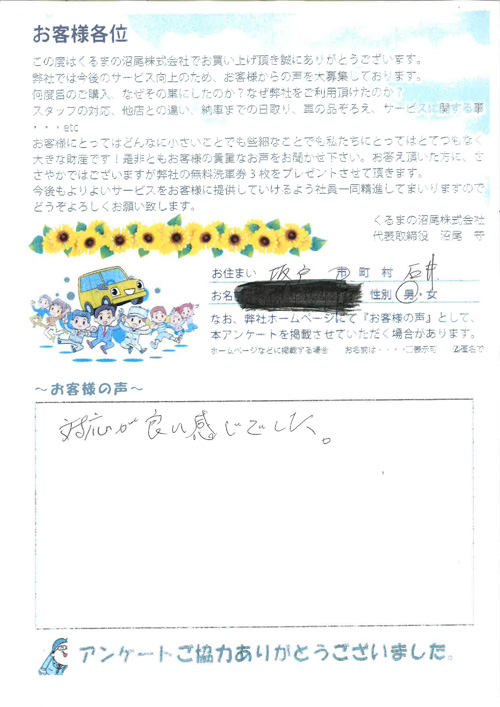 お客様各位
この度はくるまの沼尾株式会社でお買い上げ頂き誠にありがとうございます。
弊社では今後のサービス向上のため、お客様からの声を大募集しております。
何度目のご購入、なぜその車にしたのか？なぜ弊社をご利用頂けたのか？
スタッフの対応、他店との違い、納車までの日取り、車の品ぞろえ、サービスに関する事
・・・etc
お客様にとってはどんなに小さいことでも些細なことでも私たちにとってはとてつもなく
大きな財産です！是非ともお客様の貴重なお声をお聞かせ下さい。お答え頂いた方に、さ
さやかではございますが弊社の無料洗車券３枚をプレゼントさせて頂きます。
今後もよりよいサービスをお客様に提供していけるよう社員一同精進してまいりますので
どうぞよろしくお願い致します。
くるまの沼尾株式会社
代表取締役　沼尾　守
お住まい 坂戸 市 町 村 石井
お名 性別 男・女
なお、弊社ホームページにて『お客様の声』として、
本アンケートを掲載させていただく場合があります。
ホームページなどに掲載する場合　お名前は・・・・□表示可　☑匿名で
～お客様の声～
対応が良い感じでした。
アンケートご協力ありがとうございました。